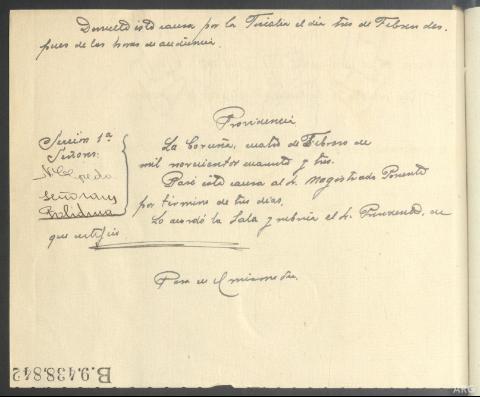 Devuelta esta causa por la Fiscalia el dia tres de Febrero des-
pues de las horas de audiencia.
Providencia
Sección 1ª
Señores:
La Coruña, cuatro de Febrero de
mil novecientos cuarenta y tres.
Pase esta causa al Sr. Magistrado Ponente
por término de tres dias.
Lo acordó la Sala y rubrica el Sr. Presidente, de
que certifico
Pasa en el mismo dia.
B.9.438.842
ARG